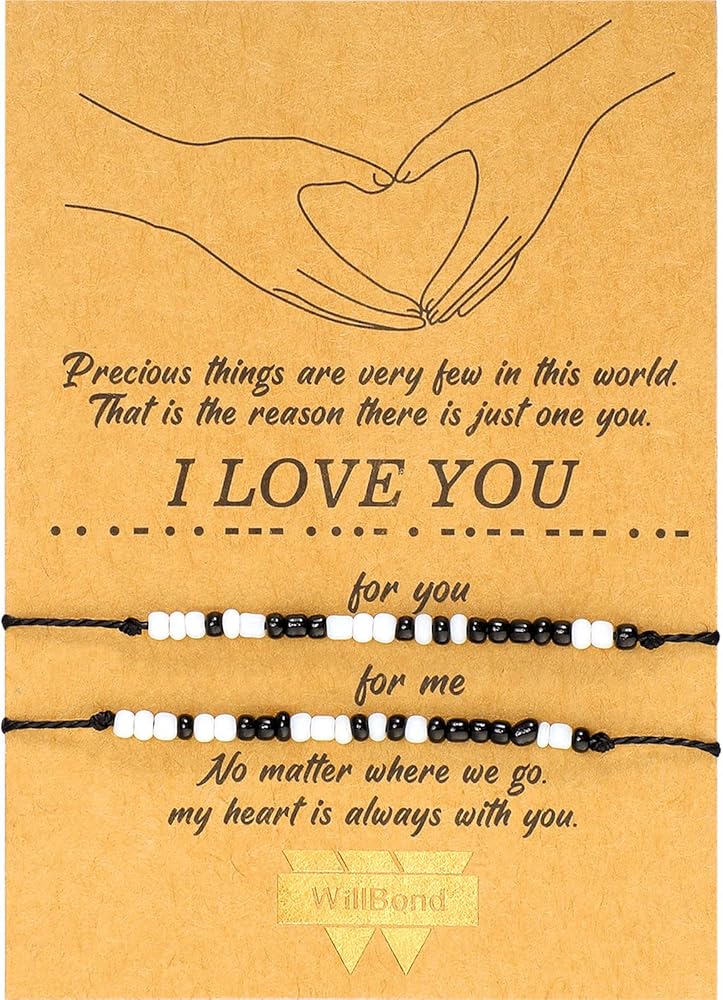 Precious things are very few in this world.
That is the reason there is just one you.
I LOVE YOU
for you
for me
No matter where we go.
my heart is always with you.
WillBond